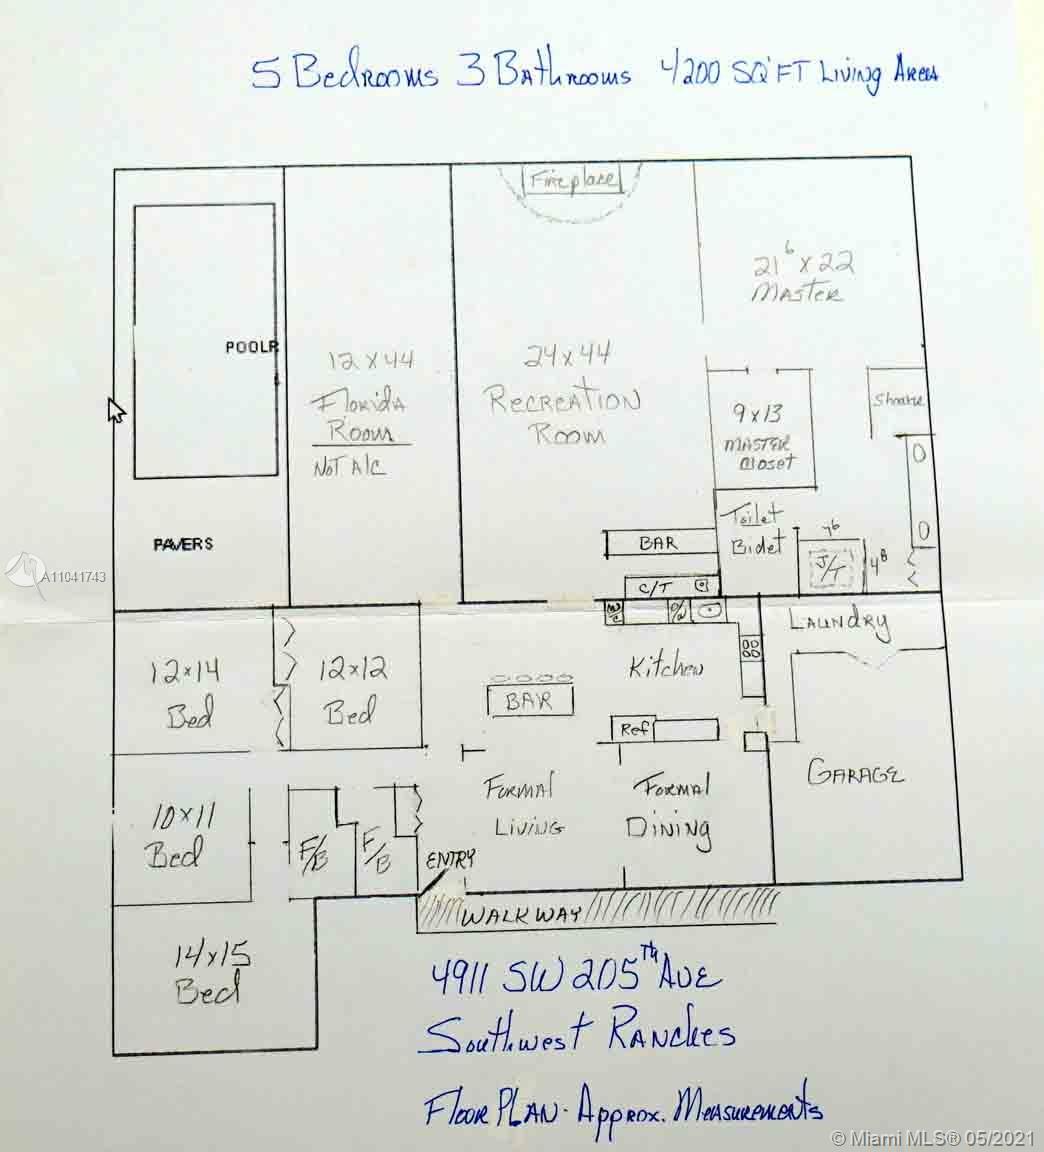 5 Bedrooms 3 Bathrooms 4200 SQ' FT Living Area
Fireplace
21⁶ x 22
MASTER
POOLR
12 x 44
Florida
Room
NOT A/C
24 x 44
RECREATION
ROOM
9 x 13
MASTER
Closet
Shower
PAVERS
BAR
Toilet
Bidet
7⁶
J/T
4⁸
A11041743
C/T
D/W
LAUNDRY
12 x 14
Bed
12 x 12
Bed
Kitchen
BAR
Ref
10 x 11
Bed
F/B
F/B
FORMAL
LIVING
FORMAL
DINING
GARAGE
ENTRY
WALKWAY
14 x 15
Bed
4911 SW 205TH AVE
Southwest RANCHES
Floor PLAN - Approx. Measurements
© Miami MLS® 05/2021